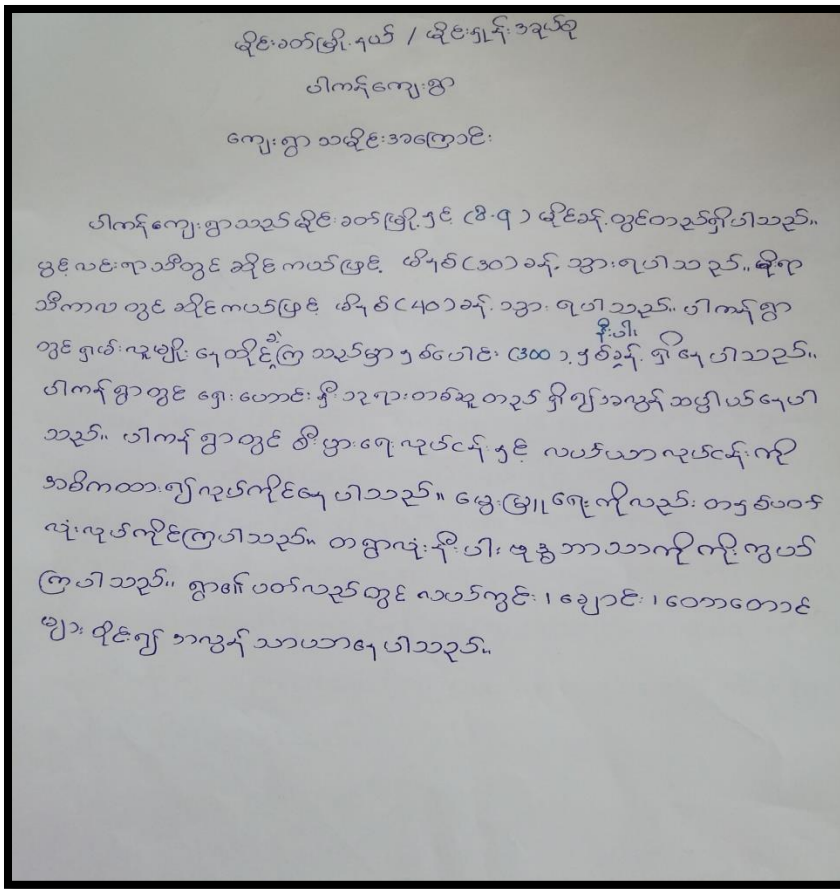 မိုင်းခတ်မြို့နယ် / မိုင်းဟွန်းအုပ်စု
ပါကန်ကျေးရွာ
ကျေးရွာ သမိုင်းအကြောင်း
ပါကန်ကျေးရွာသည် မိုင်းခတ်မြို့နှင့် (8.၅) မိုင်ခန့်တွင်တည်ရှိပါသည်။
ပွင့်လင်းရာသီတွင် ဆိုင်ကယ်ဖြင့် မိနစ်(30)ခန့် သွားရပါသည်။ မိုးရာ
သီကာလတွင် ဆိုင်ကယ်ဖြင့် မိနစ်(40)ခန့် သွားရပါသည်။ ပါကန်ရွာ
တွင် ရှမ်းလူမျိုး နေထိုင်ခဲ့ကြသည်မှာ နှစ်ပေါင်း (300) နှစ်ခန့် နီးပါး ရှိနေပါသည်။
ပါကန်ရွာတွင် ရှေးဟောင်းနှီးဘုရားတစ်ဆူတည်ရှိ၍အလွန်သပ္ပါယ်နေပါ
သည်။ ပါကန်ရွာတွင် စီးပွားရေးလုပ်ငန်းနှင့် လယ်ယာလုပ်ငန်းကို
အဓိကထား၍လုပ်ကိုင်နေပါသည်။ မွေးမြူရေးကိုလည်း တနိုင်တပိုင်
လုံးလုပ်ကိုင်ကြပါသည်။ တရွာလုံးနီးပါး ဗုဒ္ဓဘာသာကိုကိုးကွယ်
ကြပါသည်။ ရွာ၏ပတ်လည်တွင် လယ်ကွင်း၊ချောင်း၊တောတောင်
များဝိုင်း၍ အလွန်သာယာနေပါသည်။